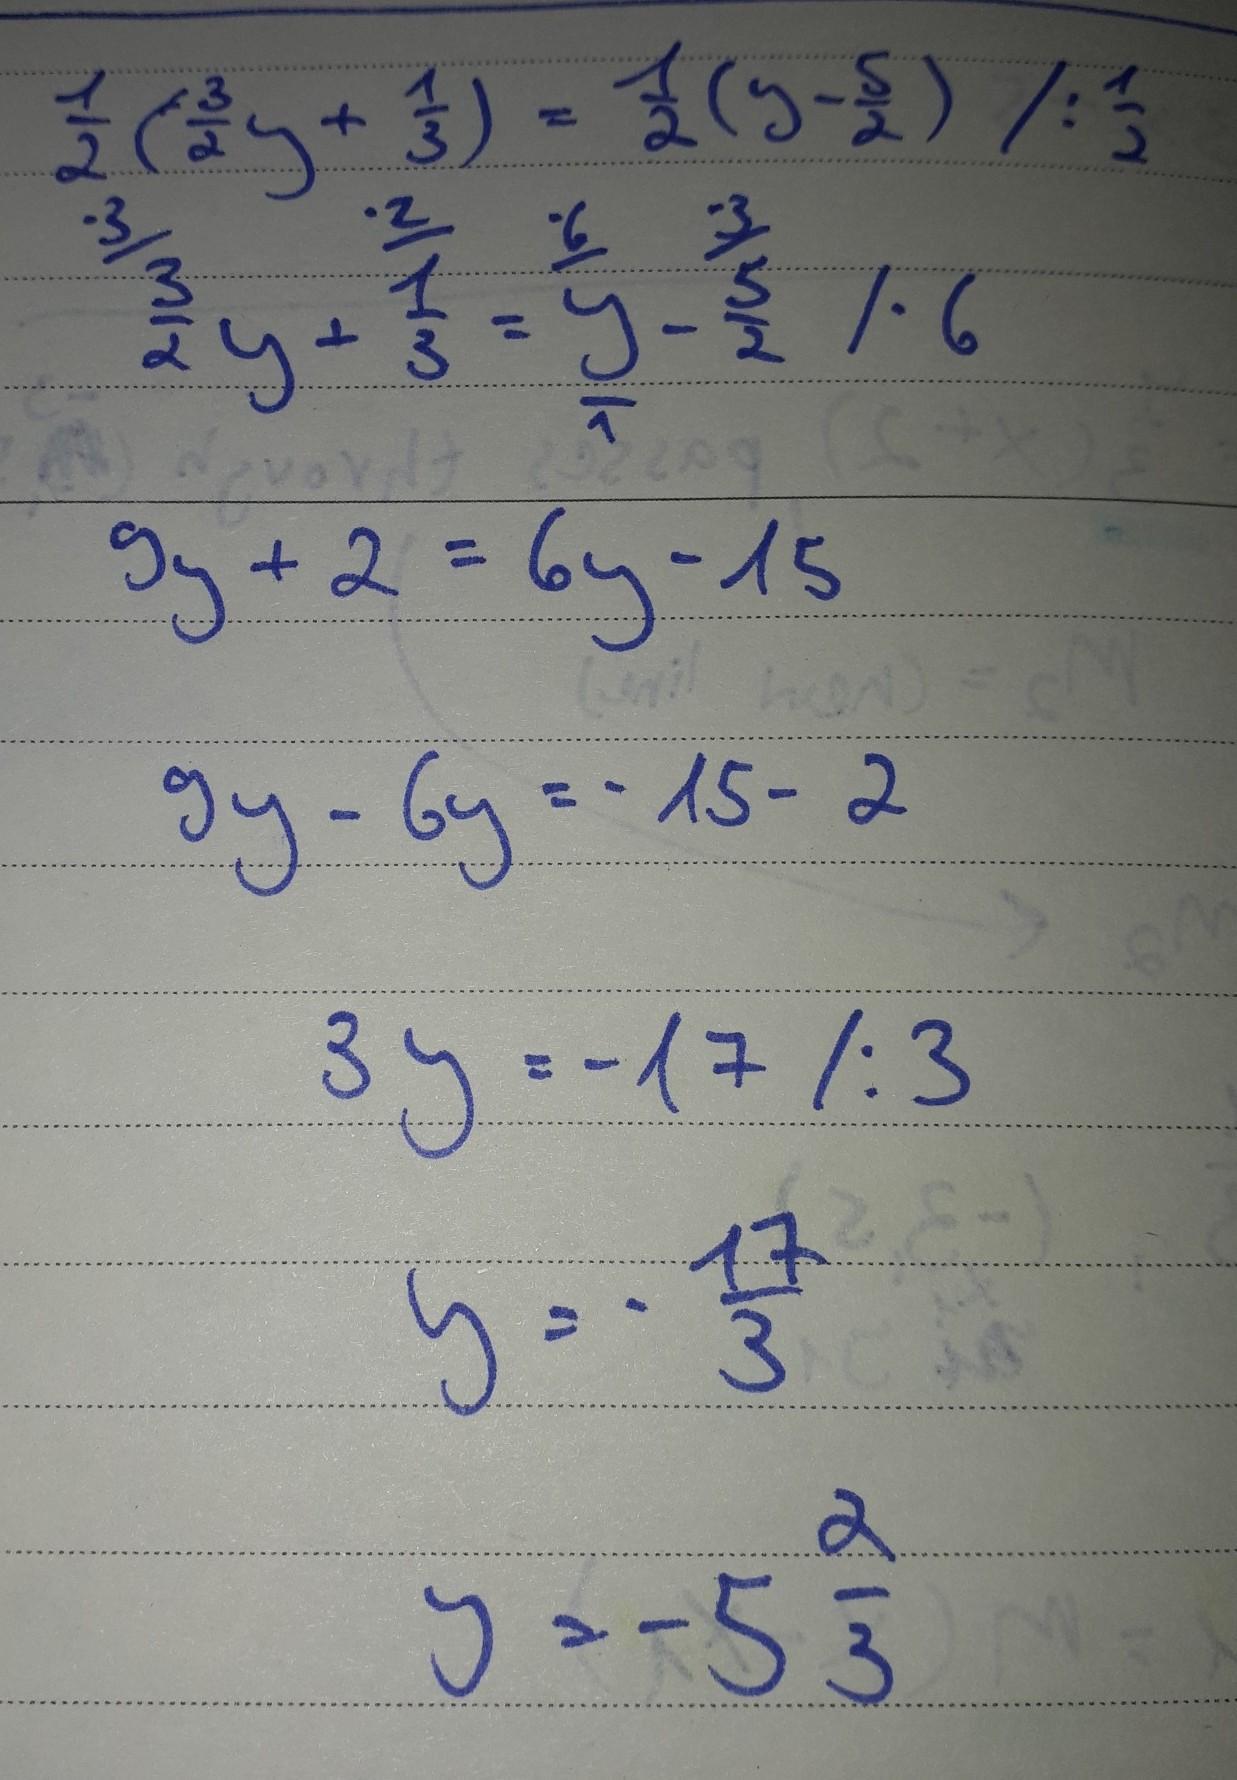 1/2 (3/2 y + 1/3) = 1/2 (y - 5/2) /: 1/2
·3/ ·2/ ·6/ ·3/
3/2 y + 1/3 = y/1 - 5/2 /· 6
9y + 2 = 6y - 15
9y - 6y = - 15 - 2
3y = -17 /: 3
y = - 17/3
y = -5 2/3